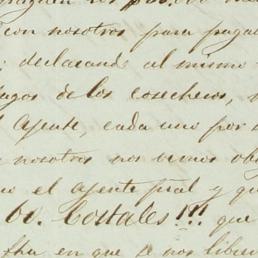 con nosotros para pagar
; declarando al mismo
pagos de los cosecheros,
el Agente, cada uno por
nosotros nos vemos obl
el agente pral y qu
60. Costales!!! que
fha en que se nos libre